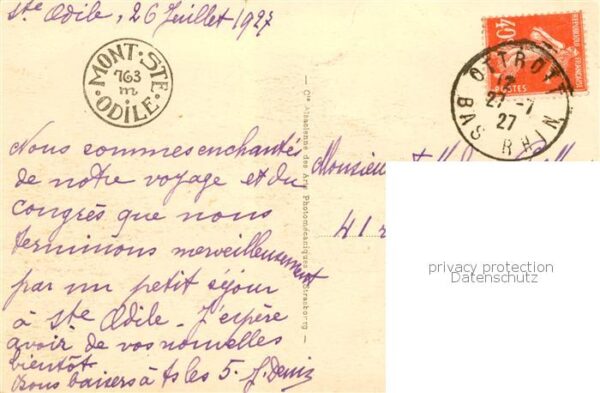 Ste Odile, 26 Juillet 1927
MONT-STE
763
m
ODILE
40
REPUBLIQUE FRANÇAISE
POSTES
OTTROTT
17
27-7
27
BAS RHIN
Nous sommes enchantés
de notre voyage et du
congrès que nous
terminons merveilleusement
par un petit séjour
à Ste Odile - J'espère
avoir de vos nouvelles
bientôt
Bons baisers à ts les 5. J. Deniz
Cie Alsacienne des Arts Photomécaniques Strasbourg
Monsieur
41 r
privacy protection
Datenschutz